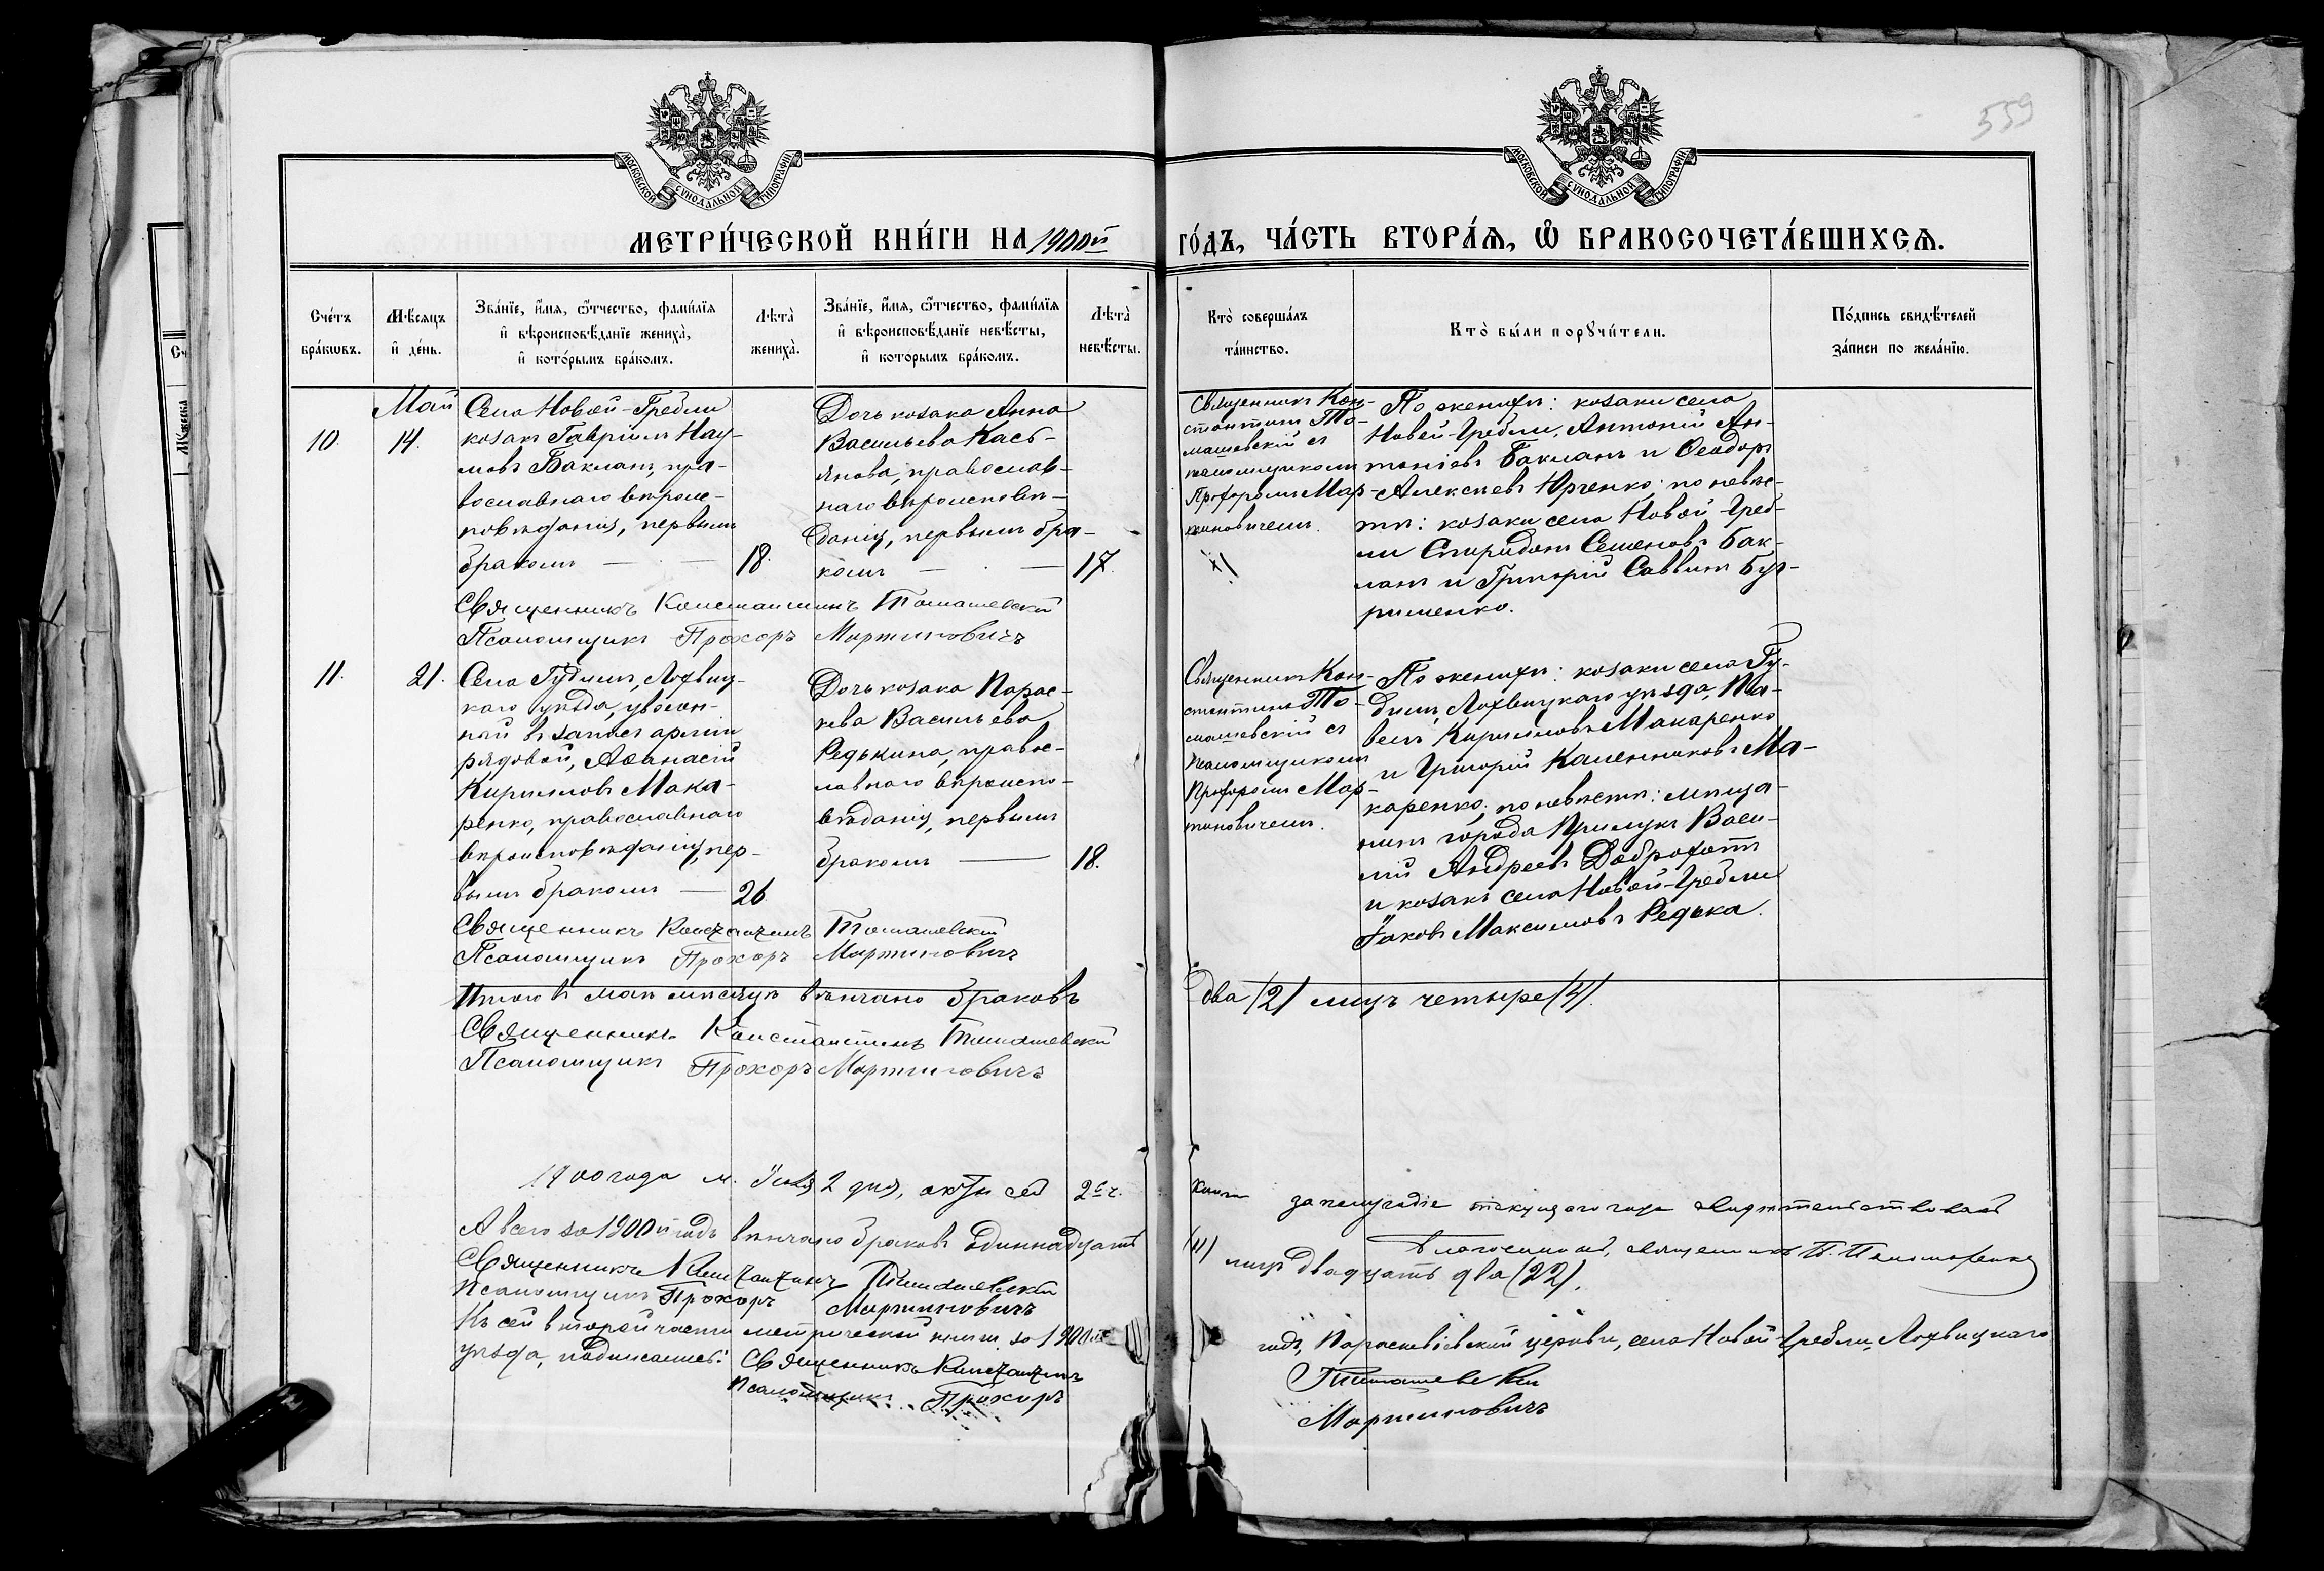 559
МОСКОВСКОЙ СѴНОДАЛЬНОЙ ТИПОГРАФІИ
МОСКОВСКОЙ СѴНОДАЛЬНОЙ ТИПОГРАФІИ
МЕТРИ́ЧЕСКОЙ КНИ́ГИ НА 1900й
ГО́ДЪ, ЧА́СТЬ ВТОРА́Я, Ѡ БРАКОСОЧЕТА́ВШИХСѦ.
Сче́тъ бра́кωвъ.
Мѣ́сяцъ и҆ де́нь.
Зва́нїе, и҆́мя, ѻ҆́тчество, фами́лїя
и҆ вѣроисповѣ́данїе жениха̀,
и҆ кото́рымъ бра́комъ.
Лѣта̀ жениха̀.
Зва́нїе, и҆́мя, ѻ҆́тчество, фами́лїя
и҆ вѣроисповѣ́данїе невѣ́сты,
и҆ которымъ бра́комъ.
Лѣта̀ невѣ́сты.
Кто̀ соверша́лъ та́инство.
Кто̀ бы́ли порꙋчи́тели.
По́дпись свидѣ́телей за́писи по жела́нїю.
Май
10.
14.
Села Новой-Гребли
козакъ Гавріилъ Нау-
мовъ Бакланъ, пра-
вославнаго вѣроис-
повѣданія, первымъ
бракомъ
18.
Дочь козака Анна
Васильева Касъ-
янова, православ-
наго вѣроисповѣ-
данія, первымъ бра-
комъ
17.
Священникъ Кон-
стантинъ То-
машевскій съ
псаломщикомъ
Прохоромъ Мар-
тиновичемъ.
По женихѣ: козаки села
Новой-Гребли, Антоній Ан-
тоніевъ Бакланъ и Ѳеодоръ
Алексѣевъ Юрченко; по невѣс-
тѣ: козаки села Новой-Греб-
ли Спиридонъ Семеновъ Бак-
ланъ и Григорій Саввинъ Бур-
рименко.
Священникъ Константинъ Томашевскій
Псаломщикъ Прохоръ Мартиновичъ
11.
21.
Села Гудимъ, Лохвиц-
каго уѣзда, уволен-
ный въ запасъ арміи
рядовой, Аѳанасій
Кирилловъ Мака-
ренко, православнаго
вѣроисповѣданія, пер-
вымъ бракомъ
26
Дочь козака Парас-
кева Васильева
Редькина, правос-
лавнаго вѣроиспо-
вѣданія, первымъ
бракомъ
18.
Священникъ Кон-
стантинъ То-
машевскій съ
псаломщикомъ
Прохоромъ Мар-
тиновичемъ.
По женихѣ: козаки села Гу-
димъ, Лохвицкаго уѣзда, Па-
велъ Кирилловъ Макаренко
и Григорій Калениковъ Ма-
каренко; по невѣстѣ: мѣща-
нинъ города Прилукъ Васи-
лій Андреевъ Доброхотъ
и козакъ села Новой-Гребли
Іаковъ Максимовъ Редька.
Священникъ Константинъ Томашевскій
Псаломщикъ Прохоръ Мартиновичъ
Итого въ маѣ мѣсяцѣ вѣнчано браковъ
два (2) лицъ четыре (4).
Священникъ Константинъ Томашевскій
Псаломщикъ Прохоръ Мартиновичъ
1900 года м. Іюля 2 дня, акты сей 2й ч.
книги за полугодіе текущаго года свидѣтельствовалъ
Благочинный, священникъ П. Пономаренко
А всего за 1900й годъ вѣнчано браковъ одиннадцать
(11) лицъ двадцать два (22).
Священникъ Константинъ Томашевскій
Псаломщикъ Прохоръ Мартиновичъ
Къ сей второй части метрической книги за 1900й
годъ, Параскевіевской церкви, села Новой-Гребли, Лохвицкаго
уѣзда, подписались:
Священникъ Константинъ Томашевскій
Псаломщикъ Прохоръ Мартиновичъ